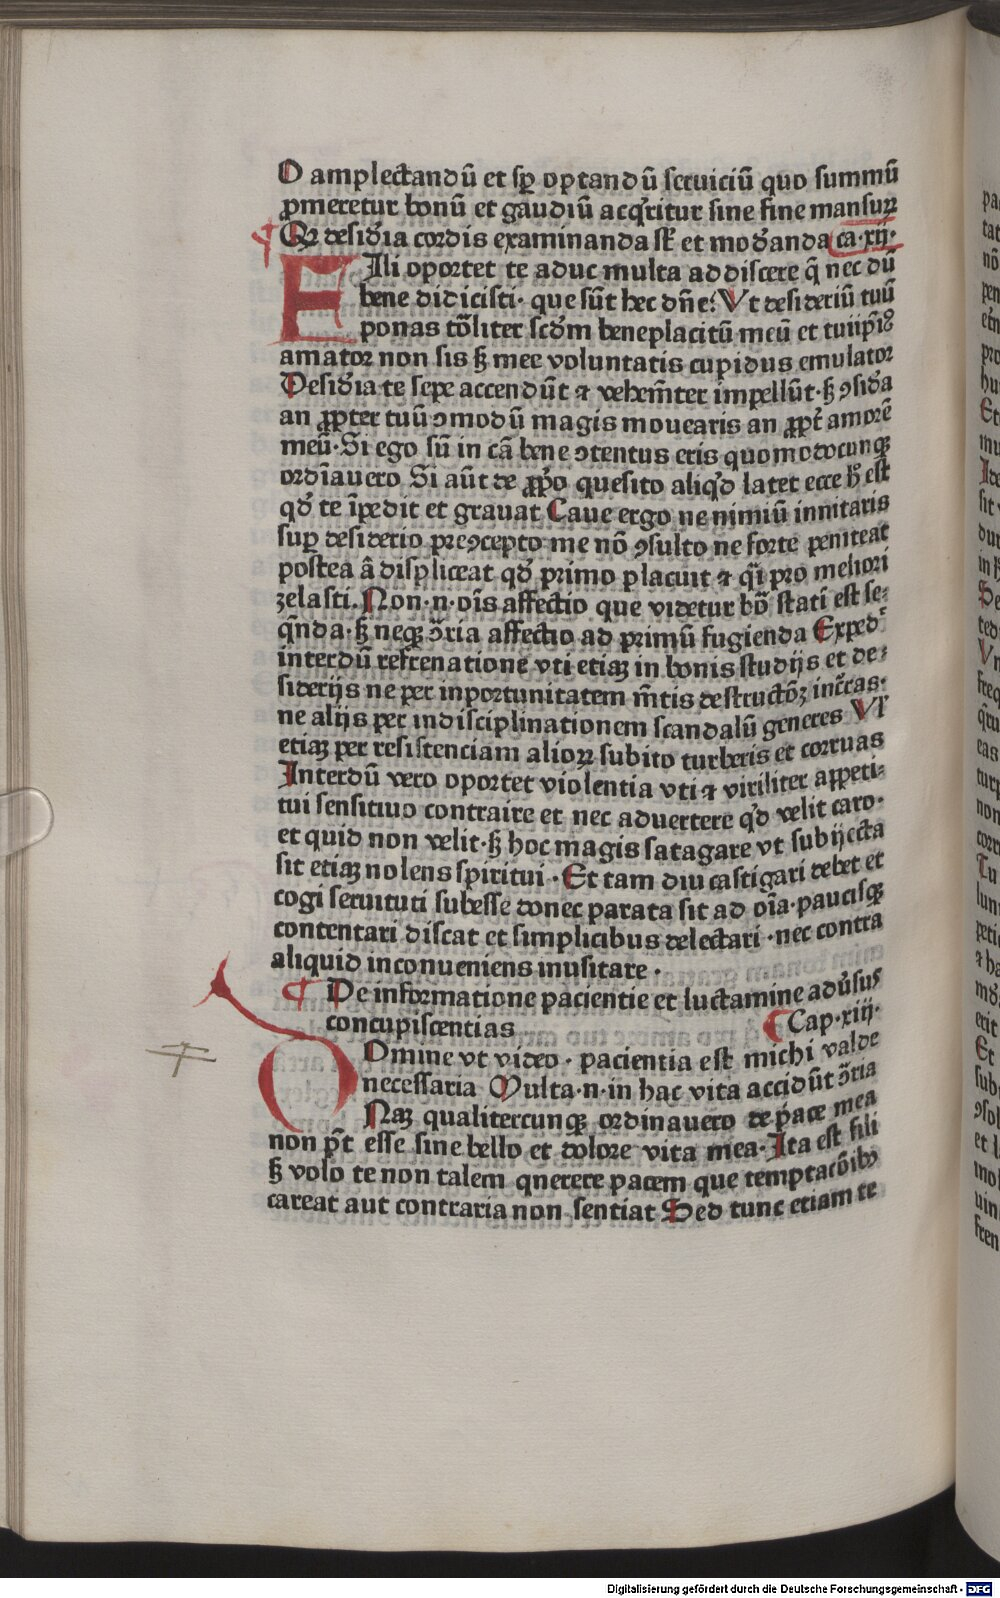 O amplectandū et sꝑ optandū seruiciū quo summū
ꝓmeretur bonū et gaudiū acq̄ritur sine fine mansuꝝ
¶ Qꝛ desid̾ia cordis examinanda st̄ et mod̾anda ca·xij·
EIli oportet te aduc multa addiscere q̄ nec dū
bene didicisti· que sūt hec dn̄e: Vt desideriū tuū
ponas to͞liter scd̾m beneplacitū meū et tuiip̄iꝰ
amator non sis ſꝫ mee voluntatis cupidus emulator
Desid̾ia te sepe accendūt ⁊ vehem̄ter impellūt·ſꝫ ꝯsid̾a
an ꝓpter tuū ꝯmodū magis mouearis an ꝓpt̾ amorē
meū·Si ego sū in cā bene ꝯtentus eris quomodocunqꝫ
ordīauero Si aūt de ꝓp̾o quesito aliq̾d latet ecce h̾ est
qd̾ te īpedit et grauat Caue ergo ne nimiū innitaris
suꝑ desiderio preꝯcepto me nō ꝯsulto ne forte peniteat
postea â displiceat qd̾ primo placuit ⁊ q̄i pro meliori
zelasti. Non·n·oīs affectio que videtur bō stati est se:
q̄nda·ſꝫ neqꝫ ꝯ̄ria affectio ad primū fugienda Exped̾
interdū refrenatione vti etiaꝫ in bonis studijs et de:
siderijs ne per inportunitatem m̄tis destructōꝫ inc̄ras·
ne alijs per indisciplinationem scandalū generes Vl̾
etiaꝫ per resistenciam alioꝝ subito turberis et corruas
Interdū vero oportet violentia vti ⁊ viriliter appeti:
tui sensitiuo contraire et nec aduertere q̾d velit caro·
et quid non velit·ſꝫ hoc magis satagare vt subijecta
sit etiaꝫ nolens spiritui· Et tam diu castigari debet et
cogi seruituti subesse donec parata sit ad oīa·paucisqꝫ
contentari discat et simplicibus delectari ·nec contra
aliquid inconueniens musitare ·
¶ De informatione pacientie et luctamine adu̾sus
concupiscentias ¶ Cap·xiij·
DOmine vt video · pacientia est michi valde
necessaria Multa·n·in hac vita accidūt ꝯ̄ria
Naꝫ qualitercunqꝫ ordinauero de pace mea
non p̄t esse sine bello et dolore vita mea·Ita est fili
ſꝫ volo te non talem querere pacem que temptacōibꝰ
careat aut contraria non sentiat Sed tunc etiam te
Digitalisierung gefördert durch die Deutsche Forschungsgemeinschaft - DFG